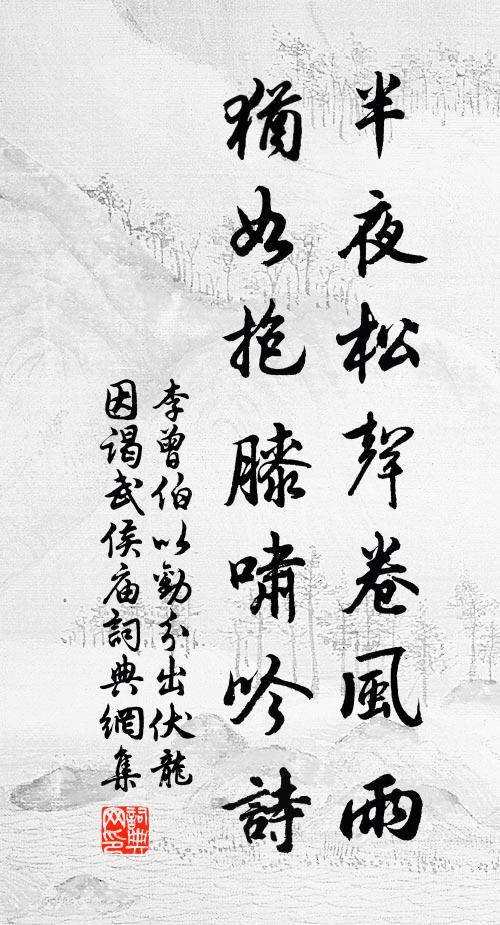 半夜松聲卷風雨
猶如抱膝嘯吟詩
李曾伯以勸分出伏龍
因谒武侯庙詞典網集
詞典網印